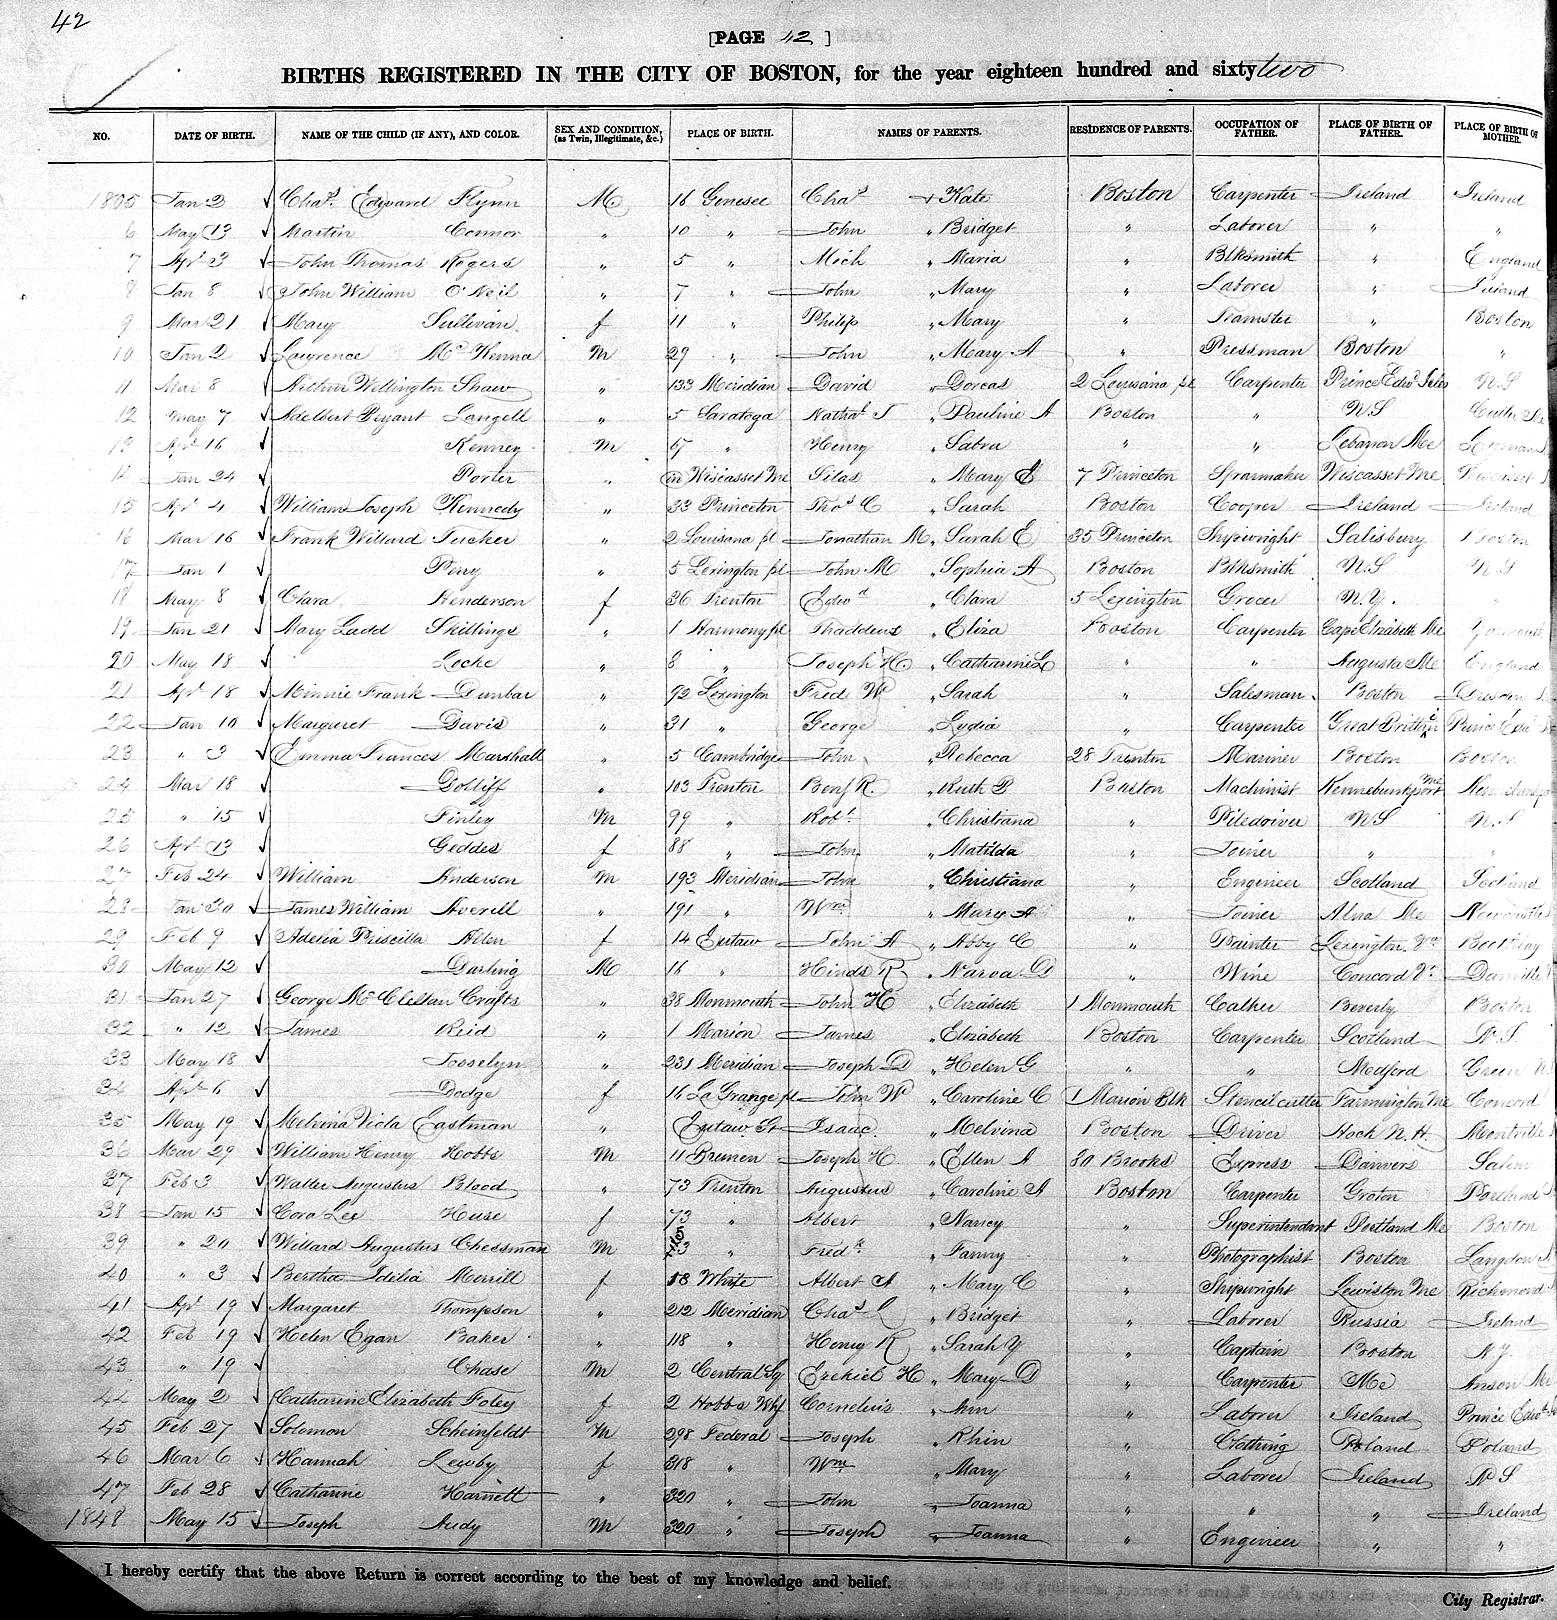 42
[PAGE 42 ]
BIRTHS REGISTERED IN THE CITY OF BOSTON, for the year eighteen hundred and sixty two
NO. DATE OF BIRTH. NAME OF THE CHILD (IF ANY), AND COLOR. SEX AND CONDITION, (as Twin, Illegitimate, &c.) PLACE OF BIRTH. NAMES OF PARENTS. RESIDENCE OF PARENTS. OCCUPATION OF FATHER. PLACE OF BIRTH OF FATHER. PLACE OF BIRTH OF MOTHER.
1805 Jan 2 Chas. Edward Flynn M 16 Genesee Chas + Kate Boston Carpenter Ireland Ireland
6 May 13 Martin Connor " 10 " John " Bridget " Laborer " "
7 Apl 3 John Thomas Rogers " 5 " Mich " Maria " Blksmith " England
8 Jan 8 John William O'Neil " 7 " John " Mary " Laborer " Ireland
9 Mar 21 Mary Sullivan f 11 " Philip " Mary " Teamster " Boston
10 Jan 2 Lawrence McKenna M 29 " John " Mary A " Pressman Boston "
11 Mar 8 Arthur Wellington Shaw " 133 Meridian David " Dorcas 2 Louisiana pl Carpenter Prince Edwd Isles N.S
12 May 7 Adelbert Bryant Langell " 5 Saratoga Nathal T " Pauline A Boston " N.S
13 Apl 16 Kenney M 67 " Henry " Sabra " " Lebanon Me
14 Jan 24 Porter " in Wiscasset Me Silas " Mary E 7 Princeton Sparmaker Wiscasset Me
15 Apl 4 William Joseph Kennedy " 33 Princeton Thos C " Sarah Boston Cooper Ireland Ireland
16 Mar 16 Frank Willard Tucker " 2 Louisana pl Jonathan M " Sarah E 35 Princeton Shipwright Salisbury Boston
17 Jan 1 Perry " 5 Lexington pl John M " Sophia A Boston Blksmith N.S N.S
18 May 8 Clara Henderson f 36 Trenton Edwd " Clara 5 Lexington Grocer N.Y. "
19 Jan 21 Mary Ladd Skillings " 1 Harmony pl Thaddeus " Eliza Boston Carpenter Cape Elizabeth Me
20 May 18 Locke " 8 " Joseph H " Catharine L " " Augusta Me England
21 Apl 18 Minnie Frank Dunbar " 92 Lexington Fred W " Sarah " Salesman Boston Dresden
22 Jan 10 Margaret Davis " 31 " George " Lydia " Carpenter Great Brittain Prince Edwd
23 " 3 Emma Frances Marshall " 5 Cambridge John " Rebecca 28 Trenton Mariner Boston Boston
24 Mar 18 Dolliff " 103 Trenton Benj R. " Ruth B Boston Machinist Kennebunkport Me
25 " 15 Finley M 99 " Robt " Christiana " Piledriver N.S N.S
26 Apl 13 Geddes f 88 " John " Matilda " Joiner " "
27 Feb 24 William Anderson M 193 Meridian John " Christiana " Engineer Scotland Scotland
28 Jan 20 James William Averill " 191 " Wm " Mary A " Joiner Alna Me Newcastle
29 Feb 9 Adelia Priscilla Allen f 14 Eutaw John A " Abby C " Painter Lexington Boothbay
30 May 12 Darling M 16 " Hinds R " D " Wine Concord Vt Danville
31 Jan 27 George McClellan Crafts " 38 Monmouth John H " Elizabeth 1 Monmouth Calker Beverly Boston
32 " 12 James Reid " 1 Marion James " Elizabeth Boston Carpenter Scotland N.S
33 May 18 Josselyn " 231 Meridian Joseph D " Helen G " " Medford Green
34 Apl 6 Dodge f 16 La Grange pl John W " Caroline C 1 Marion Blk Stencil cutter Farmington Me Concord
35 May 19 Melvina Viola Eastman " Eutaw St Isaac " Melvina Boston Driver N.H. Montville
36 Mar 29 William Henry Hobbs M 11 Bremen Joseph H. " Ellen A 80 Brooks Express Danvers Salem
37 Feb 3 Walter Augustus Blood " 73 Trenton Augustus " Caroline A Boston Carpenter Groton Portland
38 Jan 15 Cora Lee Huse f 73 " Albert " Nancy " Superintendant Portland Me Boston
39 " 20 Willard Augustus Chessman M " Fredk " Fanny " Photographist Boston Langdon
40 " 3 Bertha Idelia Merrill f 18 White Albert A " Mary C " Shipwright Lewiston Me Richmond
41 Apl 19 Margaret Thompson " 212 Meridian Chas L " Bridget " Laborer Russia Ireland
42 Feb 19 Helen Egan Baker " 118 " Henry R " Sarah Y " Captain Boston N.Y.
43 " 19 Chase M 2 Central Sq Ezekiel H " Mary D " Carpenter Me Anson Me
44 May 2 Catharine Elizabeth Foley f 2 Hobbs Whf Cornelius " Ann " Laborer Ireland Prince Edwd
45 Feb 27 Solomon Scheinfeldt M 298 Federal Joseph " Rhin " Clothing Poland Poland
46 Mar 6 Hannah Lewby f 318 " Wm " Mary " Laborer Ireland N.S
47 Feb 28 Catharine Harnett " 320 " John " Joanna " " " Ireland
1848 May 15 Joseph Audy M 320 " Joseph " Joanna " Engineer " "
I hereby certify that the above Return is correct according to the best of my knowledge and belief.
City Registrar.